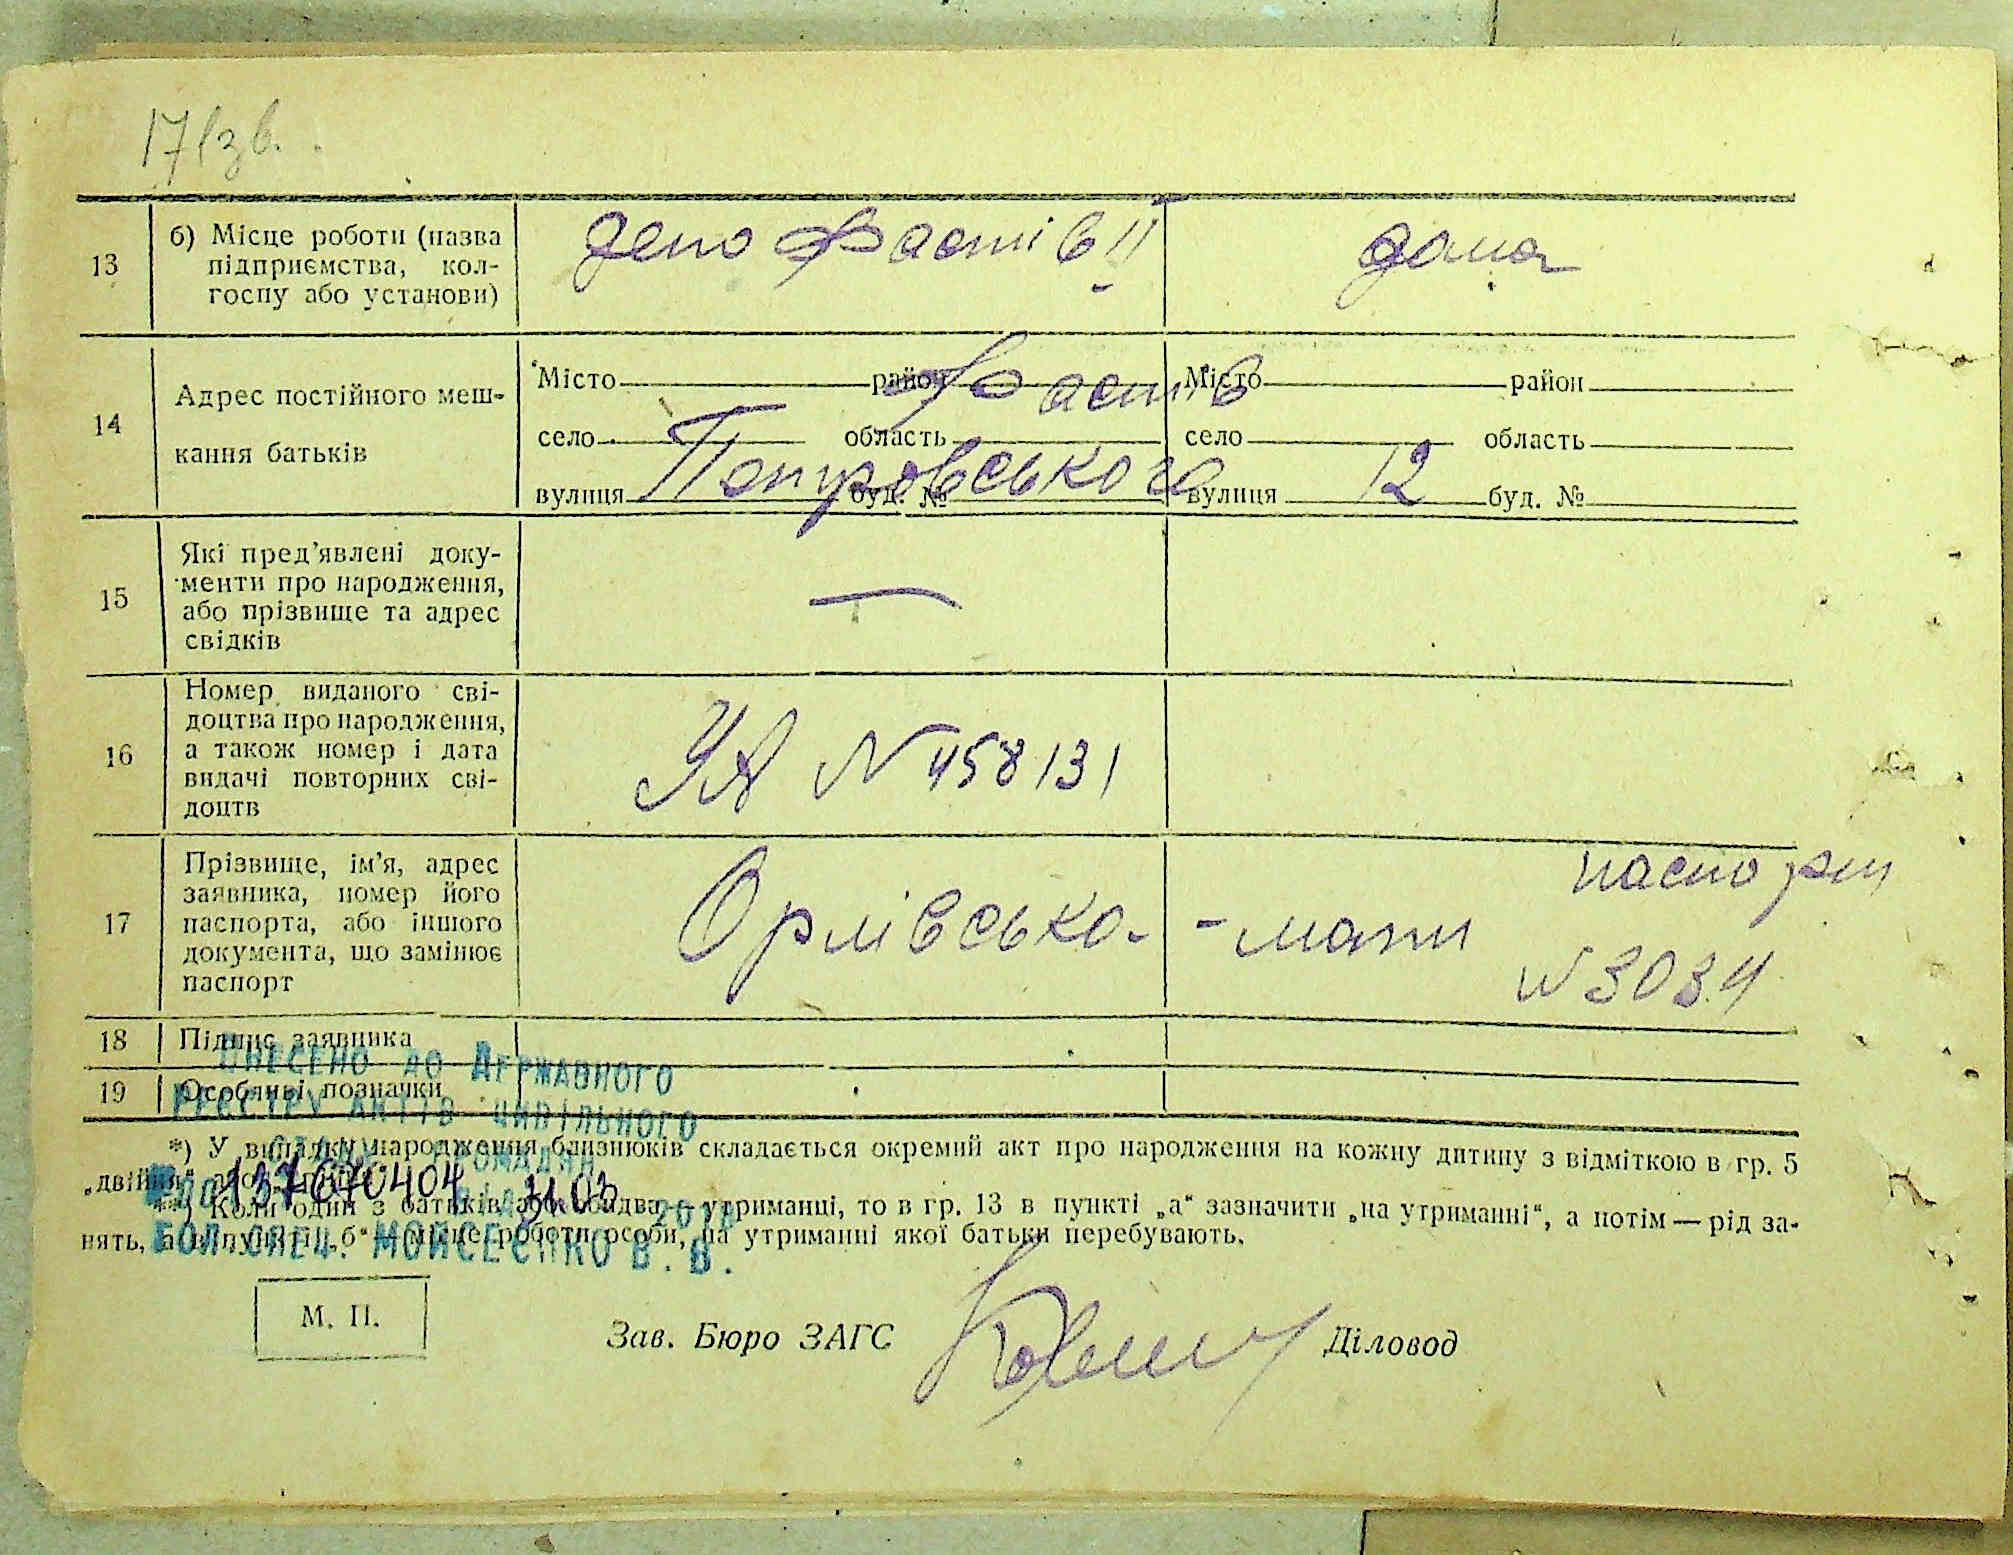 171зв.
13 б) Місце роботи (назва
підприємства, кол-
госпу або установи)
депо Фастів II дома
14 Адрес постійного меш-
кання батьків
Місто район Місто район
Фастів
село область село область
вулиця буд. № вулиця буд. №
Петровського 12
15 Які пред'явлені доку-
менти про народження,
або прізвище та адрес
свідків
—
16 Номер виданого сві-
доцтва про народження,
а також номер і дата
видачі повторних сві-
доцтв
УА N 458131
17 Прізвище, ім'я, адрес
заявника, номер його
паспорта, або іншого
документа, що замінює
паспорт
Орлівська - мати паспорт
N 3034
18 Підпис заявника
19 Особливі позначки
ВНЕСЕНО ДО ДЕРЖАВНОГО
РЕЄСТРУ АКТІВ ЦИВІЛЬНОГО
СТАНУ ГРОМАДЯН
137670404 31.03
ГОЛ.СПЕЦ. МОЙСЕЄНКО В.В.
*) У випадку народження близнюків складається окремий акт про народження на кожну дитину з відміткою в гр. 5
„двійня"
**) Коли один з батьків або обидва — утриманці, то в гр. 13 в пункті „а" зазначити „на утриманні", а потім — рід за-
нять, а в пункті „б" — місце роботи особи, на утриманні якої батьки перебувають.
М. П.
Зав. Бюро ЗАГС Діловод